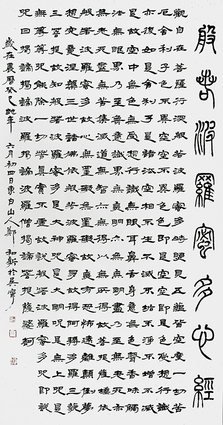 般若波羅蜜多心經
觀自在菩薩行深般若波羅蜜多時照見五蘊皆空度一切苦
厄舍利子色不異空空不異色色即是空空即是色受想行識
亦復如是舍利子是諸法空相不生不滅不垢不淨不增不減
是故空中無色無受想行識無眼耳鼻舌身意無色聲香味觸
法無眼界乃至無意識界無無明亦無無明盡乃至無老死亦
無老死盡無苦集滅道無智亦無得以無所得故菩提薩埵依
般若波羅蜜多故心無罣礙無罣礙故無有恐怖遠離顛倒夢
想究竟涅槃三世諸佛依般若波羅蜜多故得阿耨多羅三藐
三菩提故知般若波羅蜜多是大神咒是大明咒是無上咒是
無等等咒能除一切苦真實不虛故說般若波羅蜜多咒即說
咒曰揭諦揭諦波羅揭諦波羅僧揭諦菩提薩婆訶
歲在年六月初四日東白山人鄭